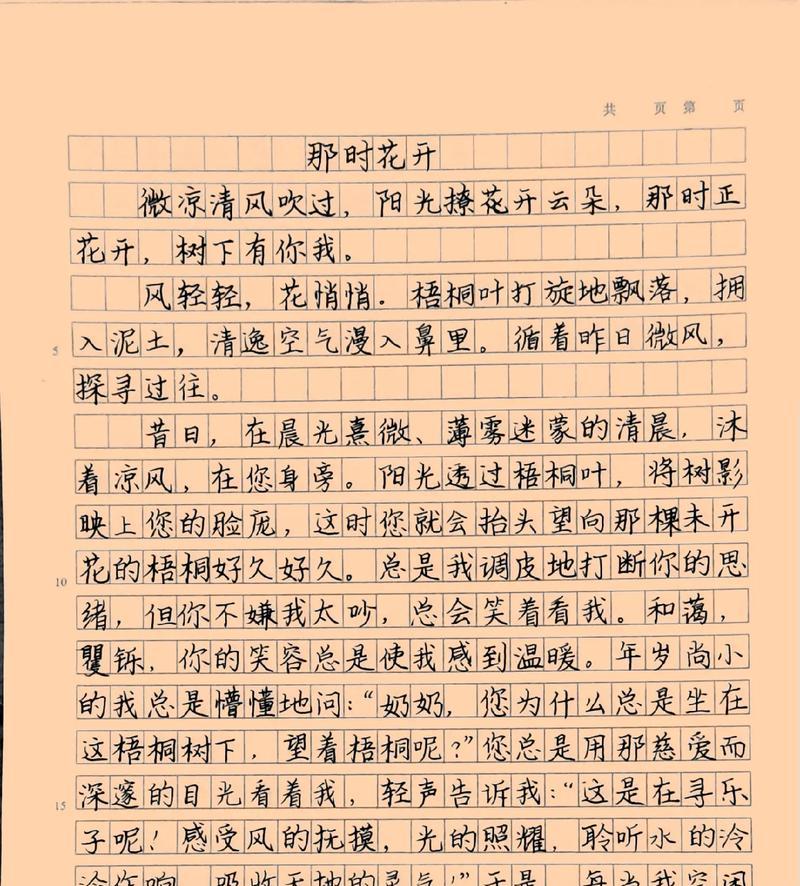 共 页 第 页
那时花开
微凉清风吹过，阳光撩花开云朵，那时正
花开，树下有你我。
风轻轻，花悄悄．梧桐叶打旋地飘落，拥
5 入泥土，清逸空气漫入鼻里。循着昨日微风，
探寻过往。
昔日，在晨光熹微、薄雾迷蒙的清晨．沐
着凉风，在您身旁。阳光透过梧桐叶，将树影
映上您的脸庞，这时您就会抬头望向那棵未开
10 花的梧桐好久好久。总是我调皮地打断你的思
绪，但你不嫌我太吵，总会笑着看我。和蔼，
矍铄，你的笑容总是使我感到温暖。年岁尚小
的我总是懵懂地问：“奶奶，您为什么总是坐在
这梧桐树下，望着梧桐呢？”您总是用那慈爱而
15 深邃的目光看着我，轻声告诉我：“这是在寻乐
子呢！感受风的抚摸，光的照耀，聆听水的泠
泠作响，吸收天地的灵气！”于是，每当我空闲